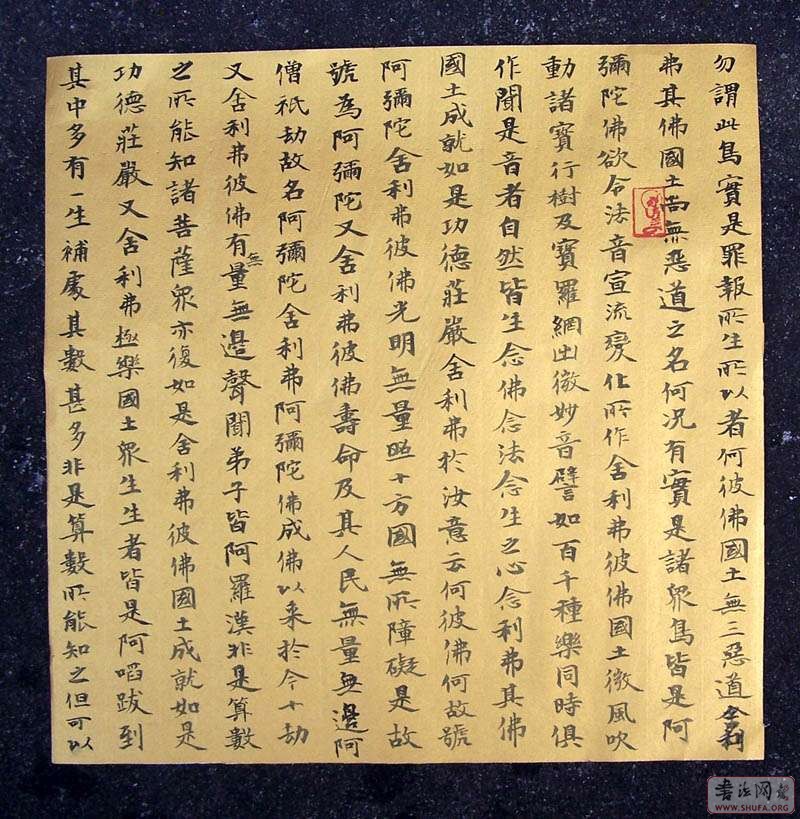 勿謂此鳥實是罪報所生所以者何彼佛國土無三惡道舍利
弗其佛國土尚無惡道之名何况有實是諸眾鳥皆是阿
彌陀佛欲令法音宣流變化所作舍利弗彼佛國土微風吹
動諸寶行樹及寶羅網出微妙音譬如百千種樂同時俱
作聞是音者自然皆生念佛念法念生之心念利弗其佛
國土成就如是功德莊嚴舍利弗於汝意云何彼佛何故號
阿彌陀舍利弗彼佛光明無量照十方國無所障礙是故
號為阿彌陀又舍利弗彼佛壽命及其人民無量無邊阿
僧祇劫故名阿彌陀舍利弗阿彌陀佛成佛以来於今十劫
又舍利弗彼佛有無量無邊聲聞弟子皆阿羅漢非是算數
之所能知諸菩薩眾亦復如是舍利弗彼佛國土成就如是
功德莊嚴又舍利弗極樂國土眾生生者皆是阿跋到
其中多有一生補處其數甚多非是算數所能知之但可以
书法网
WWW.SHUFA.ORG